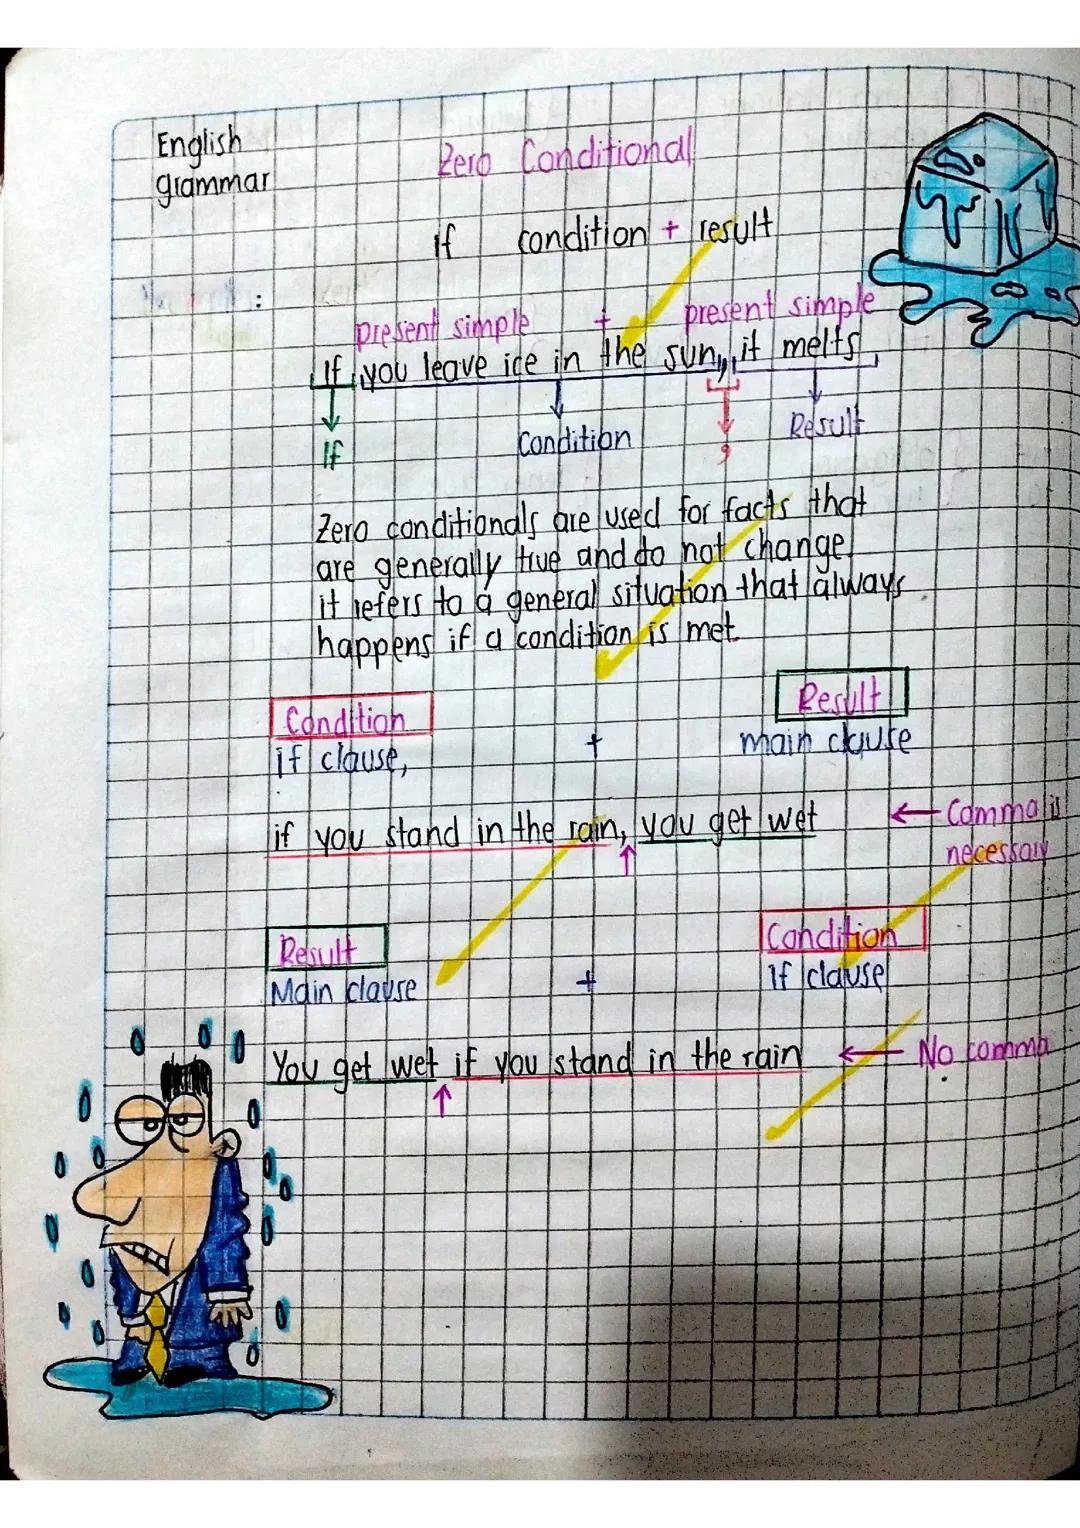 English
grammar
Zero Conditional
if condition + result
:
present simple + present simple
If you leave ice in the sun, it melts
If
Condition
,
Result
Zero conditionals are used for facts that
are generally true and do not change.
it refers to a general situation that always
happens if a condition is met
Condition
Result
if clause,
+
main clause
if you stand in the rain, you get wet
Comma is
necessary
Result
Condition
Main clause
+
If clause
You get wet if you stand in the rain
No comma